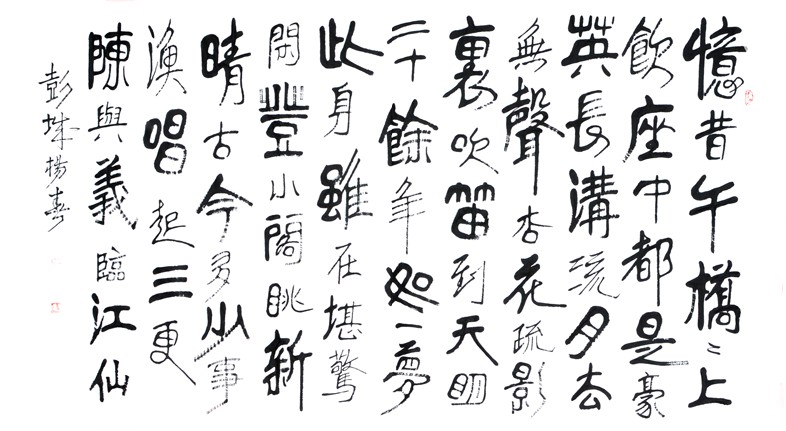 憶昔午橋〻上
飲座中都是豪
英長溝流月去
無聲杏花疏影
裏吹笛到天明
二十餘年如一夢
此身雖在堪驚
閑登小閣眺新
晴古今多少事
漁唱起三更
陳與義臨江仙
彭城楊